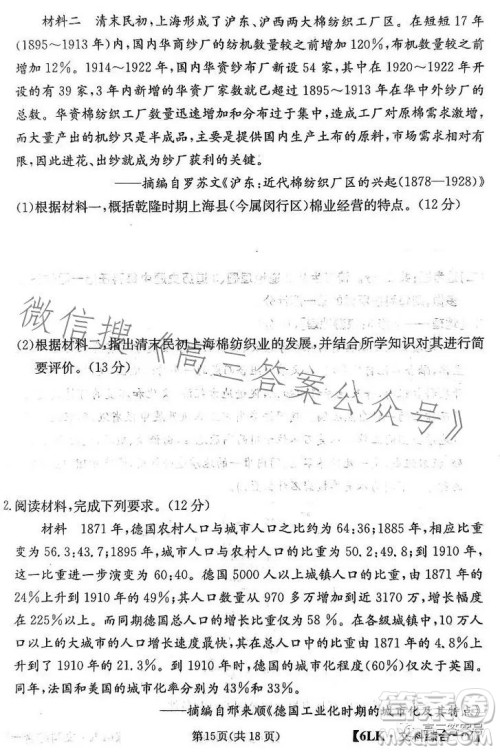 材料二　清末民初,上海形成了沪东、沪西两大棉纺织工厂区。在短短17年
(1895~1913年)内,国内华商纱厂的纺机数量较之前增加120%,布机数量较之前
增加12%。1914~1922年,国内华资纱布厂新设54家,其中在1920~1922年开
设的有39家,3年内新增的华资厂家数就已超过1895~1913年在华中外纱厂的
总数。华资棉纺织工厂数量迅速增加和分布过于集中,造成工厂对原棉需求激增,
而大量产出的机纱只是半成品,主要是提供国内生产土布的原料,市场竞争激烈,
因此进花、出纱就成为纱厂获利的关键。
——摘编自罗苏文《沪东:近代棉纺织厂区的兴起(1878—1928)》
(1)根据材料一,概括乾隆时期上海县(今属闵行区)棉业经营的特点。(12分)
(2)根据材料二,指出清末民初上海棉纺织业的发展,并结合所学知识对其进行简
要评价。(13分)
微信搜《高三答案公众号》
2.阅读材料,完成下列要求。(12分)
材料　1871年,德国农村人口与城市人口之比约为64:36;1885年,相应比重
变为56.3:43.7;1895年,城市人口与农村人口的比重为50.2:49.8;到1910年,
这一比重进一步演变为60:40。德国5000人以上城镇人口的比重,由1871年的
24%上升到1910年的49%;其人口数量从970多万增加到近3170万,增长幅度
在225%以上。而同期德国总人口的增长幅度仅为58%。在各级城镇中,10万人
口以上的大城市的人口增长速度最快,其在总人口中的比重由1871年的4.8%上
升到了1910年的21.3%。到1910年时,德国的城市化程度(60%)仅次于英国。
同年,法国和美国的城市化率分别为43%和33%。
——摘编自邢来顺《德国工业化时期的城市化及其特点》
第15页(共18页)
【6LK